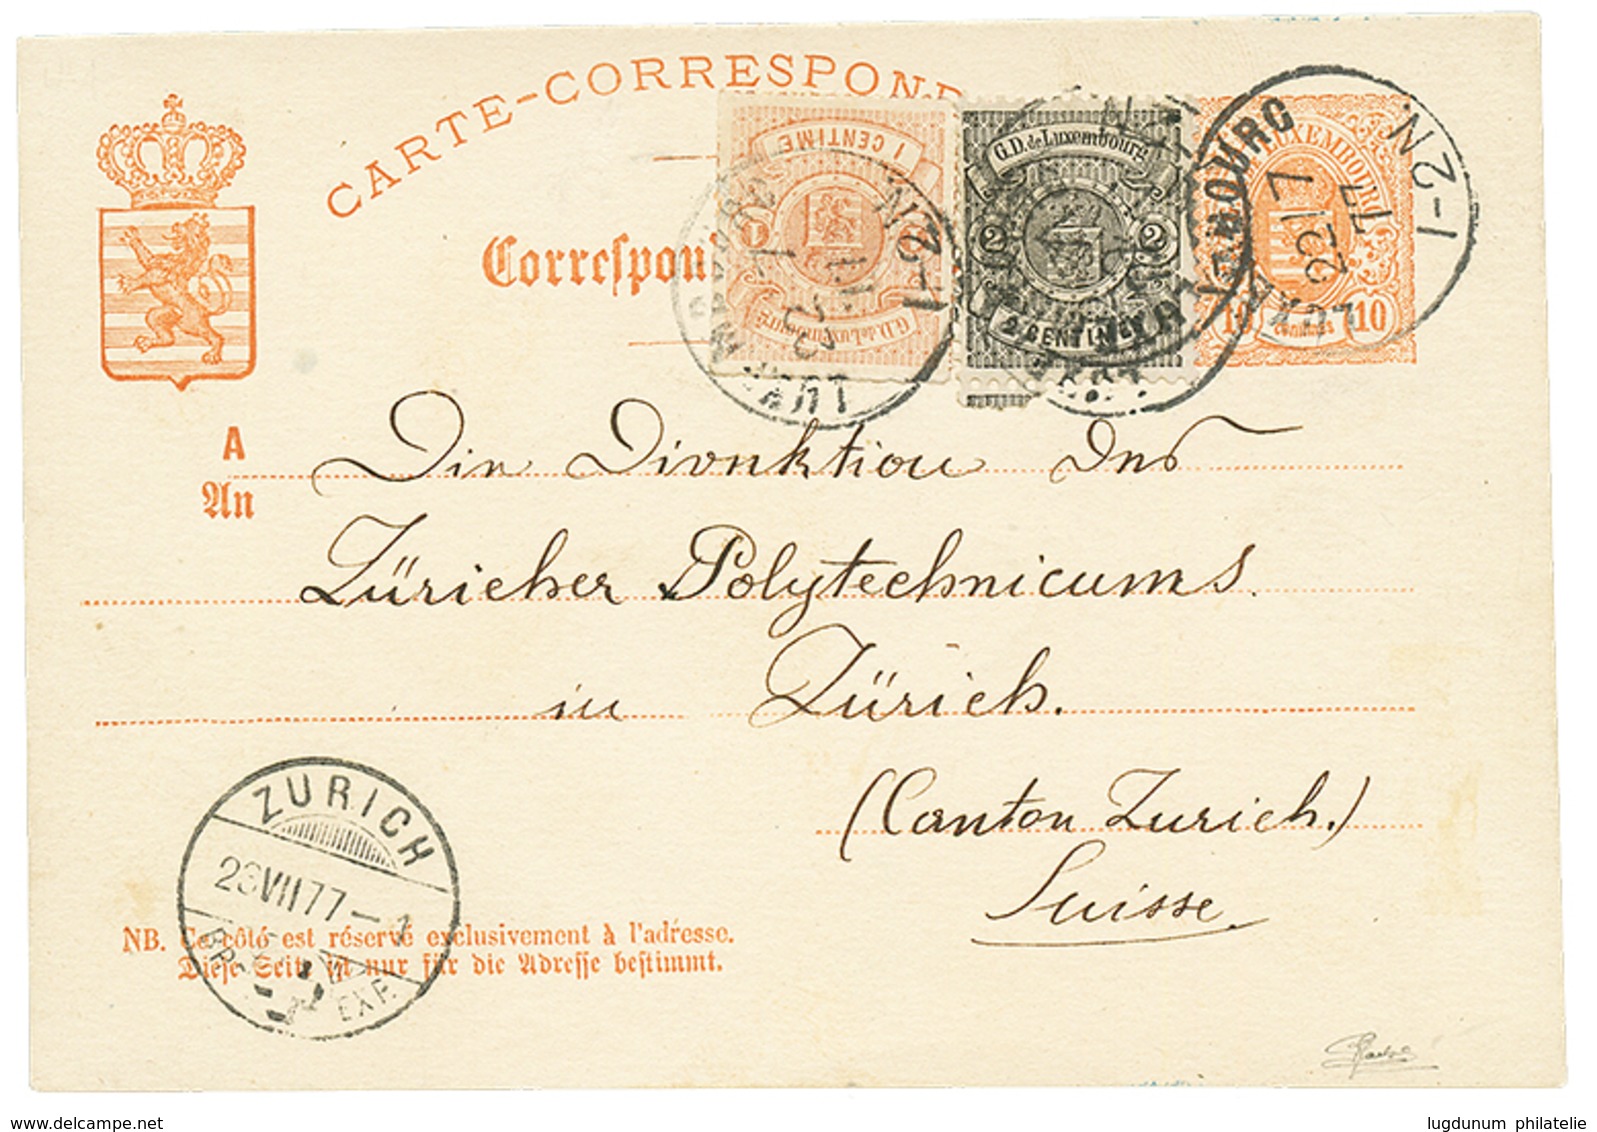 CARTE-CORRESPOND
Correspon
G.D. de Luxembourg
1 CENTIME
1
G.D. de Luxembourg
2 2
2 CENTIMES
LUXEMBOURG
10 10
centimes
LUXEMBOURG
22 7
77
1-2N
LUXEMBOURG
1-2N
A
An
Die Direktion des
Züricher Polytechnicums.
in Zürich.
(Canton Zurich.)
Suisse.
ZURICH
23 VII 77 – 1
EXP.
NB. Ce côté est réservé exclusivement à l'adresse.
Diese Seite ist nur für die Adresse bestimmt.
delcampe.net
lugdunum philatelie